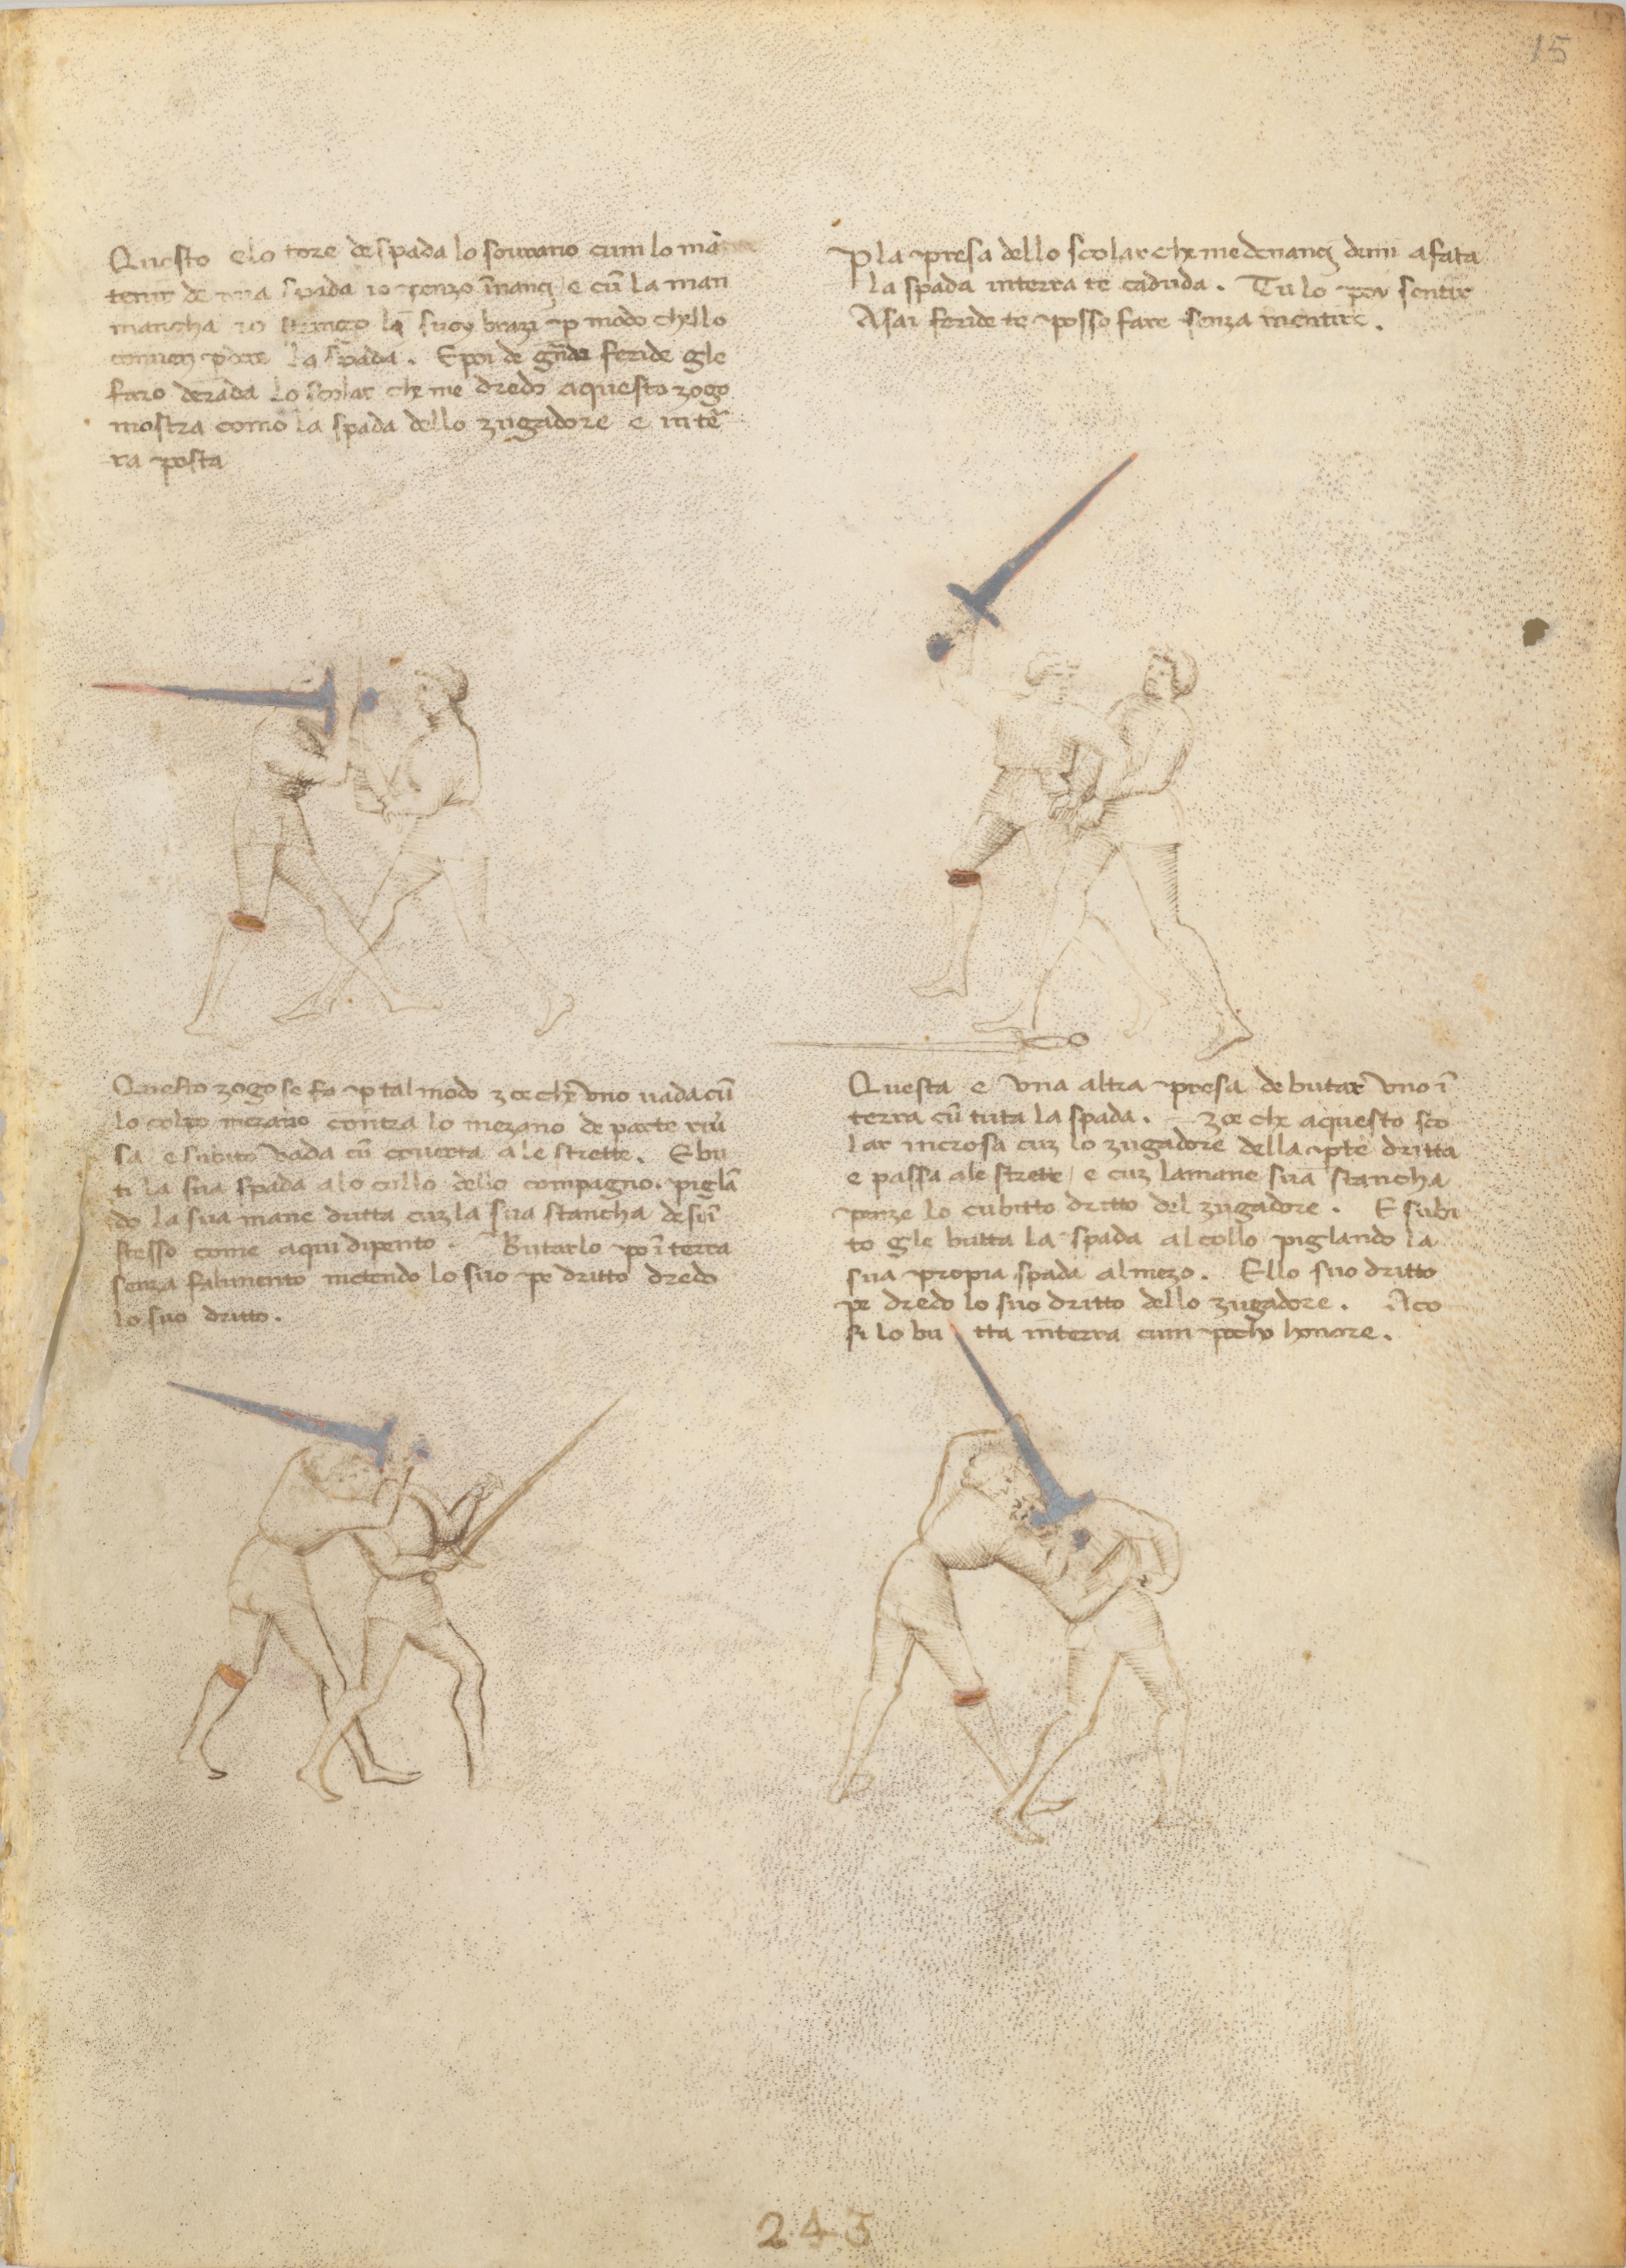 15
Questo e lo tore de spada lo sourano cum lo mā
tenir de mia spada io penzo īnanç e cū la man
mancha io strenzo li suoy brazi p modo chello
conuen pdere la spada. E poi de gñdi feride gle
faro derada Lo scolar che me dredo aquesto zogo
mostra como la spada dello zugadore e in tē
ra posta
P la presa dello scolar che me denanç demi a fata
la spada in terra te caduda. Tu lo poy sentire
Asai feride te posso fare senza mentire.
Questo zogo se fa p tal modo zoe che vno uada cū
lo colpo mezano contra lo mezano de parte riū
sa e subito vada cū couerta a le strette. E bu
ti la sua spada a lo collo dello compagno. piglā
do la sua mane dritta cuz la sua stancha de si ī
stesso come aqui dipento. Butarlo po ī terra
senza falimento metendo lo suo pe dritto dredo
lo suo dritto.
Questa e vna altra presa de butar vno ī
terra cū tuta la spada. zoe che aquesto sco
lar incrosa cuz lo zugadore della pte dritta
e passa a le strette / e cuz la mane sua stancha
penze lo cubitto dritto del zugadore. E subi
to gle butta la spada al collo piglando la
sua propia spada al mezo. E llo suo dritto
pe dredo lo suo dritto dello zugadore. Aco
si lo bu tta in terra cum pocho honore.
243